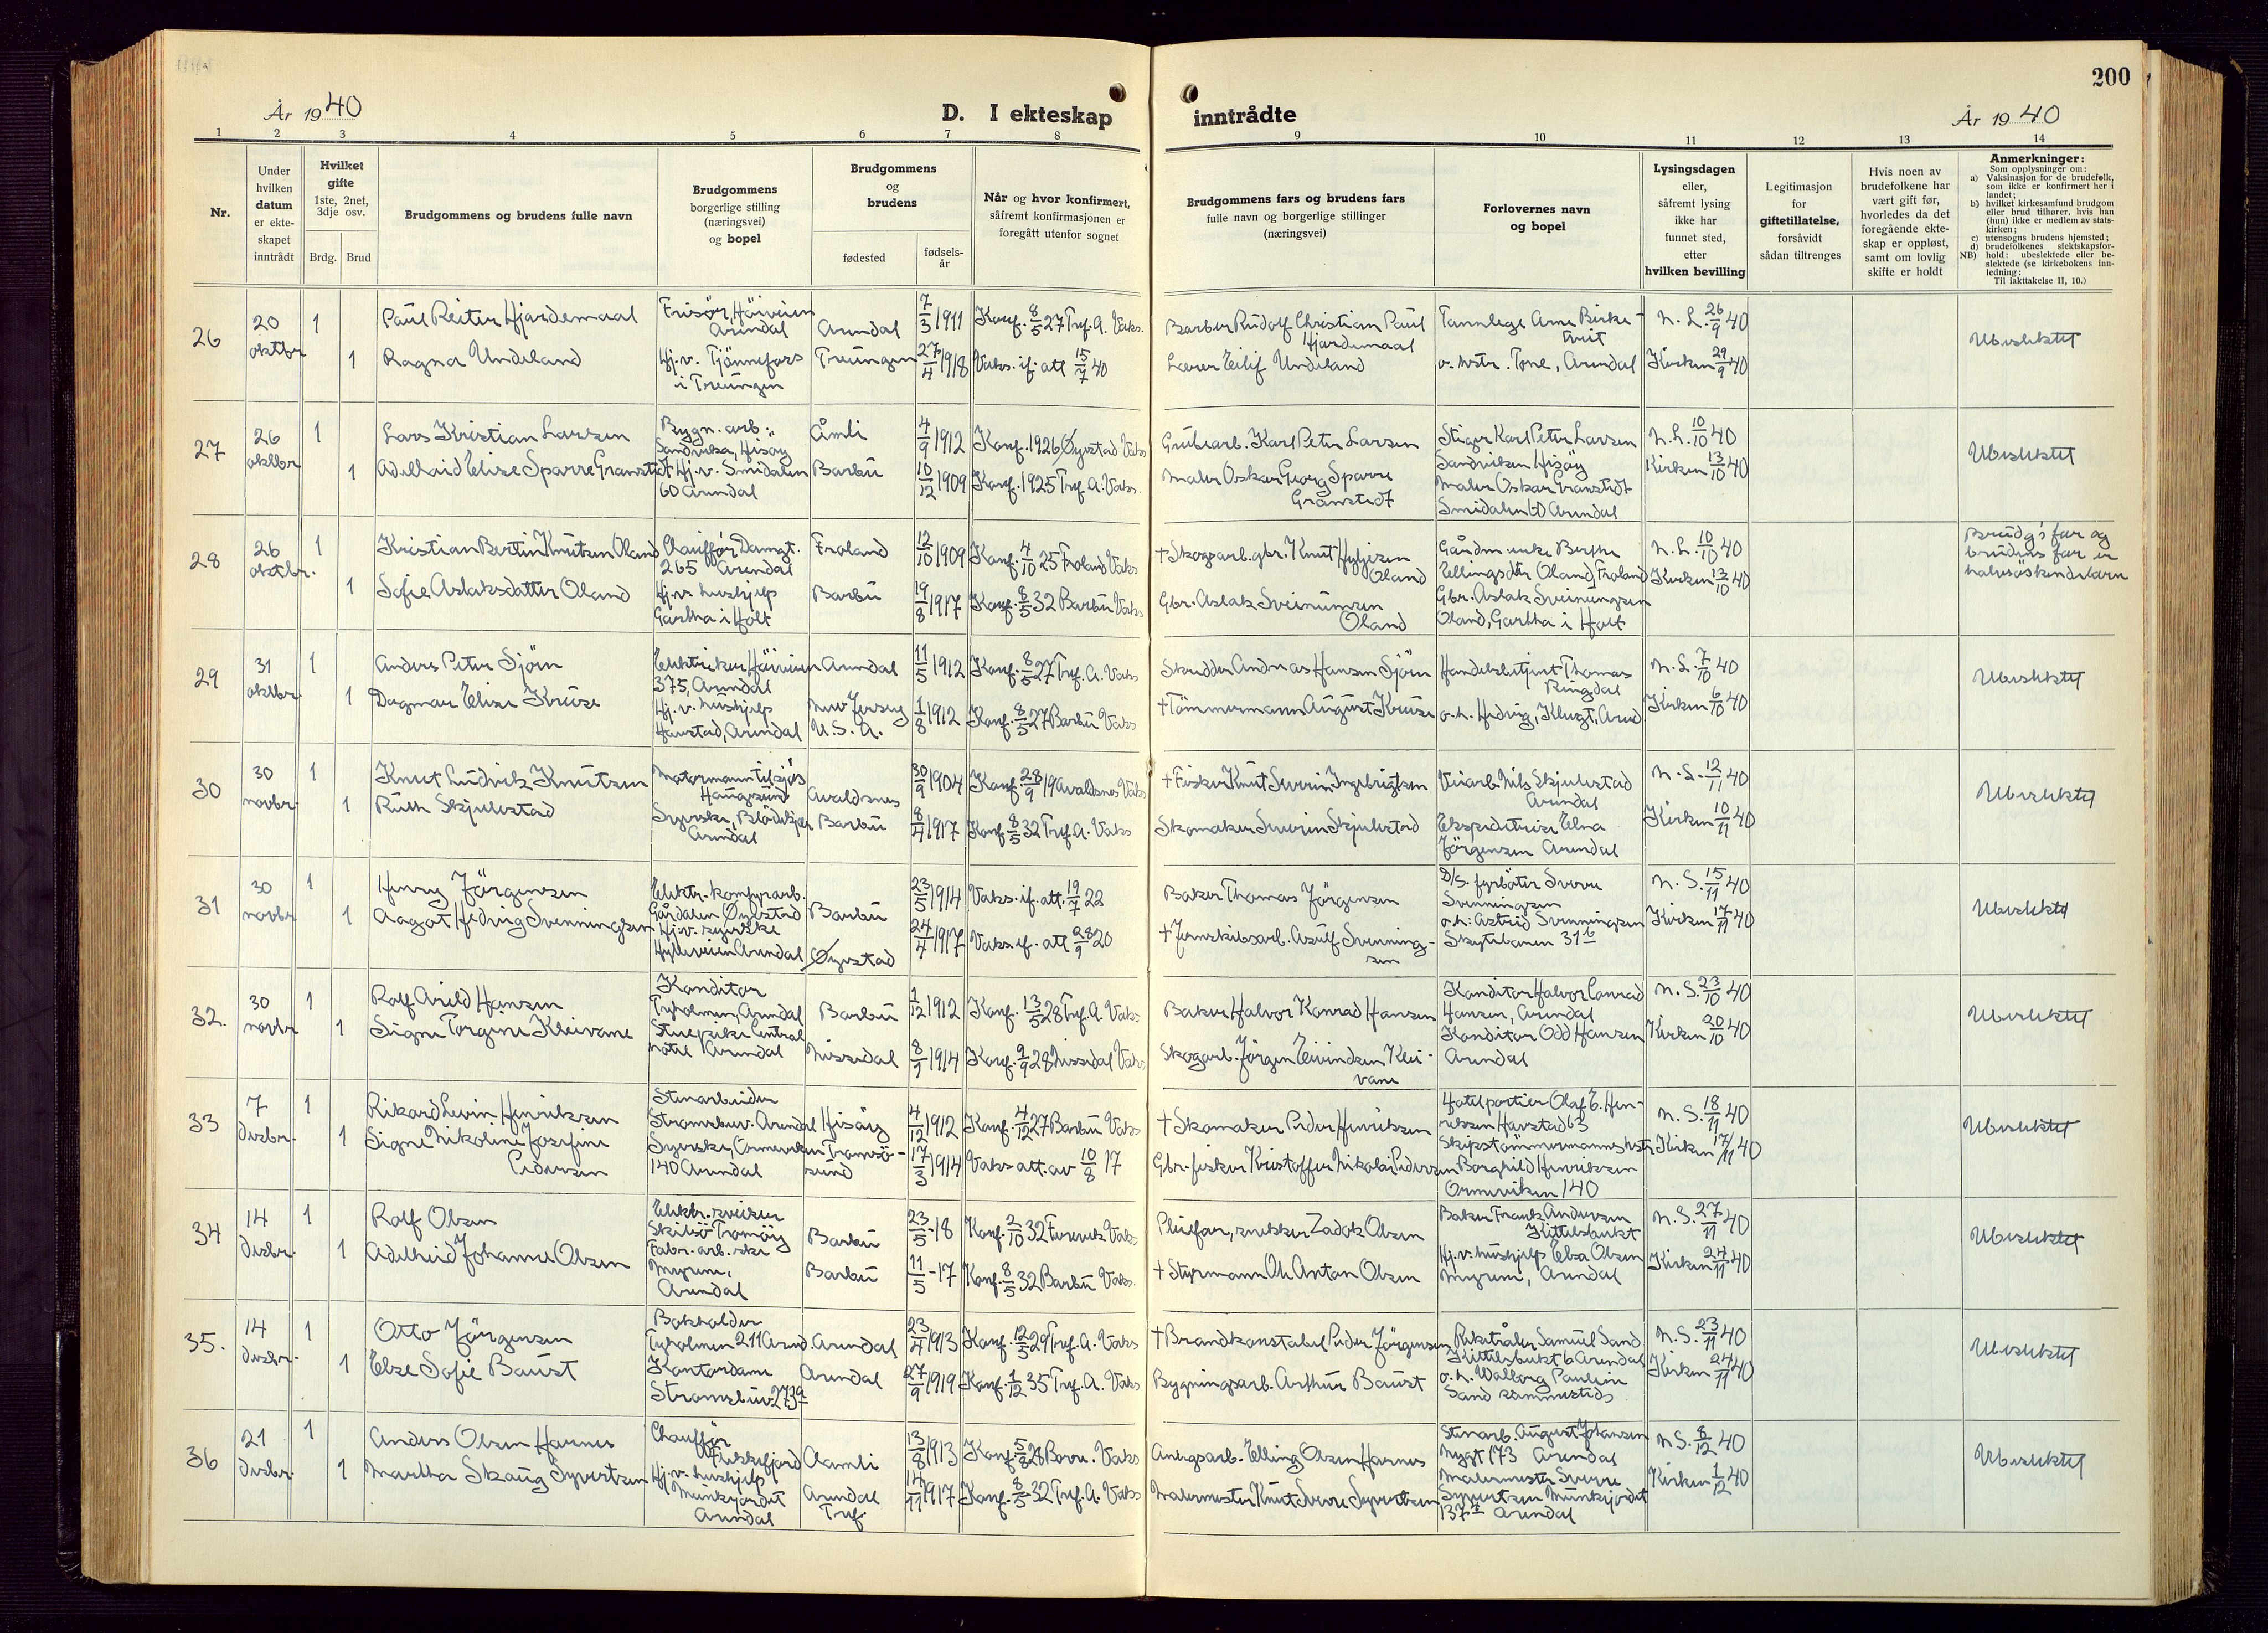 200
År 1940
D. I ekteskap
inntrådte
År 1940
1 2 3 4 5 6 7 8 9 10 11 12 13 14
Nr.
Under
hvilken
datum
er ekte-
skapet
inntrådt
Hvilket
gifte
1ste, 2net,
3dje osv.
Brdg. Brud
Brudgommens og brudens fulle navn
Brudgommens
borgerlige stilling
(næringsvei)
og bopel
Brudgommens
og
brudens
fødested
fødsels-
år
Når og hvor konfirmert,
såfremt konfirmasjonen er
foregått utenfor sognet
Brudgommens fars og brudens fars
fulle navn og borgerlige stillinger
(næringsvei)
Forlovernes navn
og bopel
Lysingsdagen
eller,
såfremt lysing
ikke har
funnet sted,
etter
hvilken bevilling
Legitimasjon
for
giftetillatelse,
forsåvidt
sådan tiltrenges
Hvis noen av
brudefolkene har
vært gift før,
hvorledes da det
foregående ekte-
skap er oppløst,
samt om lovlig
skifte er holdt
Anmerkninger:
Som opplysninger om:
a) Vaksinasjon for de brudefolk,
som ikke er konfirmert her i
landet;
b) hvilket kirkesamfund brudgom
eller brud tilhører, hvis han
(hun) ikke er medlem av stats-
kirken;
c) utensogns brudens hjemsted;
d) brudefolkenes slektskapsfor-
NB) hold: ubeslektede eller be-
slektede (se kirkebokens inn-
ledning:
Til iakttakelse II, 10.)
26
20
oktbr
1
Paul Reiter Hjardemaal
Frisør, Höiveien
Arendal
Arendal
7/3 1911
Konf. 8/5 27 Tref. A. Vaks.
Barber Rudolf Christian Paul
Hjardemaal
Tannlege Arne Birke-
tveit
N. L. 26/9 40
Ubeslektet
1
Ragna Undeland
Hj. v. Tjönnefoss
i Treungen
Treungen
27/4 1918
Vaks. if. att 15/7 40
Lærer Eilif Undeland
o. hstr. Tone, Arendal
Kirken 29/9 40
27
26
oktbr
1
Lars Kristian Larsen
Bygn. arb.
Sandvika, Hisöy
Åmli
4/9 1912
Konf. 1926 Øyestad Vaks
Grubearb. Karl Peter Larsen
Stiger Karl Peter Larsen
Sandviken Hisöy
N. L. 10/10 40
Ubeslektet
1
Adelheid Elise Sparre Granstedt
Hj. v. Smidalen
60 Arendal
Barbu
10/12 1909
Konf. 1925 Tref. A. Vaks.
Maler Oskar Georg Sparre
Granstedt
Maler Oskar Granstedt
Smidalen 60 Arendal
Kirken 13/10 40
28
26
oktbr.
1
Kristian Bertin Knutsen Oland
Chauffør, Damgt.
265 Arendal
Froland
12/10 1909
Konf. 4/10 25 Froland Vaks
† Skogarb. gbr. Knut
Oland
Gårdm. enke Berthe
Ellingsdtr Oland, Froland
N. L. 10/10 40
Brudg's far og
brudens far er
halvsöskendebarn
1
Sofie Aslaksdatter Oland
Hj. v. hushjelp
Gartha i Holt
Barbu
19/8 1917
Konf. 8/5 32 Barbu Vaks
Gbr. Aslak Sveinumsen
Oland
Gbr. Aslak Sveinungsen
Oland, Gartha i Holt
Kirken 13/10 40
29
31
oktbr.
1
Anders Peter Sjöen
Elektriker Höiveien
375, Arendal
Arendal
11/5 1912
Konf. 8/5 27 Tref. A. Vaks
Skredder Andreas Hansen Sjöen
Handelsbetjent Thomas
Ringdal
N. S. 7/10 40
Ubeslektet
1
Dagmar Elise Kruse
Hj. v. hushjelp
Havstad, Arendal
New Jersey
U. S. A.
1/8 1912
Konf. 8/5 27 Barbu Vaks
† Tömmermann August Kruse
o. h. Hedvig, Klugt, Arend.
Kirken 6/10 40
30
30
novbr.
1
Knut Ludvik Knutsen
Motormann tilsjös
Haugesund
Avaldsnes
30/9 1904
Konf. 28/9 19 Avaldsnes Vaks
† Fisker Knut Severin Ingebrigtsen
Veiarb. Nils Skjulestad
Arendal
N. S. 12/11 40
Ubeslektet
1
Ruth Skjulestad
Syerske, Blödekjær
Arendal
Barbu
8/4 1917
Konf. 8/5 32 Tref. A. Vaks
Skomaker Severin Skjulestad
Ekspeditrise Elna
Jörgensen Arendal
Kirken 10/11 40
31
30
novbr
1
Henry Jörgensen
Elektr. komfyrarb.
Gårdalen Øyestad
Barbu
23/5 1914
Vaks. if. att. 19/7 22
Baker Thomas Jörgensen
D/S. fyrböter Sverre
Svenningsen
N. S. 15/11 40
Ubeslektet
1
Aagot Hedvig Svenningsen
Hj. v. syerske
Hylleveien Arendal
Øyestad
24/4 1917
Vaks. if. att 28/9 20
† Jernskibsarb. Asulf Svenning-
sen
o. h. Astrid Svenningsen
Skytebanen 31 b
Kirken 17/11 40
32.
30
novbr
1
Rolf Arild Hansen
Konditor
Tyholmen, Arendal
Barbu
1/12 1912
Konf. 13/5 28 Tref. A. Vaks
Baker Halvor Konrad Hansen
Konditor Halvor Conrad
Hansen, Arendal
N. S. 23/10 40
Ubeslektet
1
Signe Torgine Kleivane
Stuepike Central
hotel Arendal
Nissedal
8/1 1914
Konf. 9/9 28 Nissedal Vaks
Skogarb. Jörgen Eivindsen Klei-
vane
Konditor Odd Hansen
Arendal
Kirken 20/10 40
33
7
desbr.
1
Rikard Levin Henriksen
Stenarbeider
Strømsbu. Arendal
Hisöy
4/12 1912
Konf. 4/12 27 Barbu Vaks
† Skomaker Peder Henriksen
Hotelportier Olaf E. Hen-
riksen Havstad 63
N. S. 18/11 40
Ubeslektet
1
Signe Nikoline Josefine
Pedersen
Syerske, Ormeviken
140 Arendal
Tromsö-
sund
17/3 1914
Vaks att. av 10/8 17
Gbr. fisker Kristoffer Nikolai Pedersen
Skipstömmermannshstr
Borghild Henriksen
Ormeviken 140
Kirken 17/11 40
34
14
desbr.
1
Rolf Olsen
Elektr. sveiser
Skilsö Tromöy
Barbu
23/5 - 18
Konf. 2/10 32 Fevik Vaks
Pleiefar, snekker Zadok Olsen
Baker Frank Andersen
Kittelsbukt
N. S. 27/11 40
Ubeslektet
1
Adelheid Johanne Olsen
Fabr. arb. ske
Myrene,
Arendal
Barbu
11/5 - 17
Konf. 8/5 32 Barbu Vaks.
† Styrmann Ole Anton Olsen
Hj. v. hushjelp Elsa Olsen
Myrene, Arendal
Kirken 24/11 40
35.
14
desbr.
1
Otto Jörgensen
Bokholder
Tyholmen 211 Arend.
Arendal
23/4 1913
Konf. 12/5 29 Tref. A. Vaks
† Brandkonstabel Peder Jörgensen
Samuel Sand
Kittelsbukt 6 Arendal
N. S. 23/11 40
Ubeslektet
1
Else Sofie Baust
Kontordame
Strømsbu 273 a
Arendal
27/9 1919
Konf. 1/12 35 Tref. A. Vaks
Bygningsarb. Arthur Baust
o. h. Walborg Paulin
Sand sammesteds
Kirken 24/11 40
36
21
desbr.
1
Anders Olsen Harnes
Chauffør
Flekkefjord
Aamli
13/8 1913
Konf. 5/8 28 Vaks
Anlegsarb. Elling Olsen Harnes
Stenarb. August Johansen
Nygt 173 Arendal
N. S. 6/12 40
Ubeslektet
1
Martha Skaug Syvertsen
Hj. v. hushjelp
Munkejordet
Arendal
Arendal
Tref.
14/11 1917
Konf. 8/5 32 Tref. A. Vaks
Malermester Knut Sverre Syvertsen
Malermester Sverre
Syvertsen Munkejordet
137 Arendal
Kirken 1/12 40